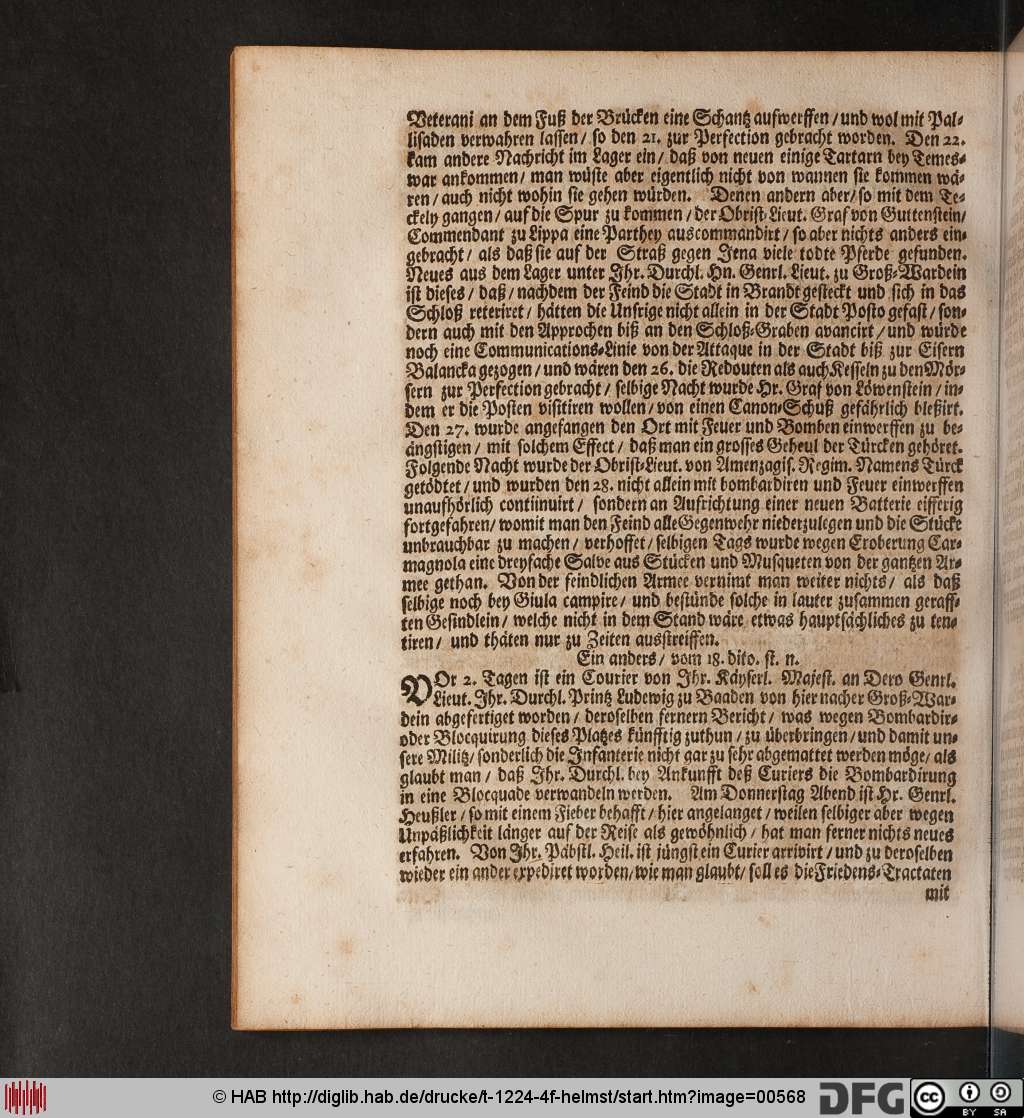 Veterani an dem Fuß der Brücken eine Schantz aufwerffen / und wol mit Pal-
lisaden verwahren lassen / so den 21. zur Perfection gebracht worden. Den 22.
kam andere Nachricht im Lager ein / daß von neuen einige Tartarn bey Temes-
war ankommen / man wüste aber eigentlich nicht von wannen sie kommen wä-
ren / auch nicht wohin sie gehen würden. Denen andern aber / so mit dem Te-
ckely gangen / auf die Spur zu kommen / der Obrist-Lieut. Graf von Guttenstein /
Commendant zu Lippa eine Parthey auscommandirt / so aber nichts anders ein-
gebracht / als daß sie auf der Straß gegen Jena viele todte Pferde gefunden.
Neues aus dem Lager unter Ihr. Durchl. Hn. Genrl. Lieut. zu Groß-Wardein
ist dieses / daß / nachdem der Feind die Stadt in Brandt gesteckt und sich in das
Schloß reteriret / hätten die Unsrige nicht allein in der Stadt Posto gefast / son-
dern auch mit den Approchen biß an den Schloß-Graben avancirt / und würde
noch eine Communications-Linie von der Attaque in der Stadt biß zur Eisern
Balancka gezogen / und wären den 26. die Redouten als auch Kesseln zu den Mör-
sern zur Perfection gebracht / selbige Nacht wurde Hr. Graf von Löwenstein / in-
dem er die Posten visitiren wollen / von einen Canon-Schuß gefährlich bleßirt.
Den 27. wurde angefangen den Ort mit Feuer und Bomben einwerffen zu be-
ängstigen / mit solchem Effect / daß man ein grosses Geheul der Türcken gehöret.
Folgende Nacht wurde der Obrist-Lieut. von Amenzagis. Regim. Namens Türck
getödtet / und wurden den 28. nicht allein mit bombardiren und Feuer einwerffen
unaufhörlich contiinuirt / sondern an Aufrichtung einer neuen Batterie eifferig
fortgefahren / womit man den Feind alle Gegenwehr niederzulegen und die Stücke
unbrauchbar zu machen / verhoffet / selbigen Tags wurde wegen Eroberung Car-
magnola eine dreyfache Salve aus Stücken und Musqueten von der gantzen Ar-
mee gethan. Von der feindlichen Armee vernimt man weiter nichts / als daß
selbige noch bey Giula campire / und bestünde solche in lauter zusammen geraff-
ten Gesindlein / welche nicht in dem Stand wäre etwas hauptsächliches zu ten-
tiren / und thäten nur zu Zeiten ausstreiffen.
Ein anders / vom 18. dito. st. n.
VOr 2. Tagen ist ein Courier von Ihr. Käyserl. Majest. an Dero Genrl.
Lieut. Ihr. Durchl. Printz Ludewig zu Baaden von hier nacher Groß-War-
dein abgefertiget worden / deroselben fernern Bericht / was wegen Bombardir-
oder Blocquirung dieses Platzes künfftig zuthun / zu überbringen / und damit un-
sere Militz / sonderlich die Infanterie nicht gar zu sehr abgemattet werden möge / als
glaubt man / daß Ihr. Durchl. bey Ankunfft deß Curiers die Bombardirung
in eine Blocquade verwandeln werden. Am Donnerstag Abend ist Hr. Genrl.
Heußler / so mit einem Fieber behafft / hier angelanget / weilen selbiger aber wegen
Unpäßlichkeit länger auf der Reise als gewöhnlich / hat man ferner nichts neues
erfahren. Von Ihr. Päbstl. Heil. ist jüngst ein Curier arrivirt / und zu deroselben
wieder ein ander expediret worden / wie man glaubt / soll es die Friedens-Tractaten
mit
© HAB http://diglib.hab.de/drucke/t-1224-4f-helmst/start.htm?image=00568 DFG cc BY SA